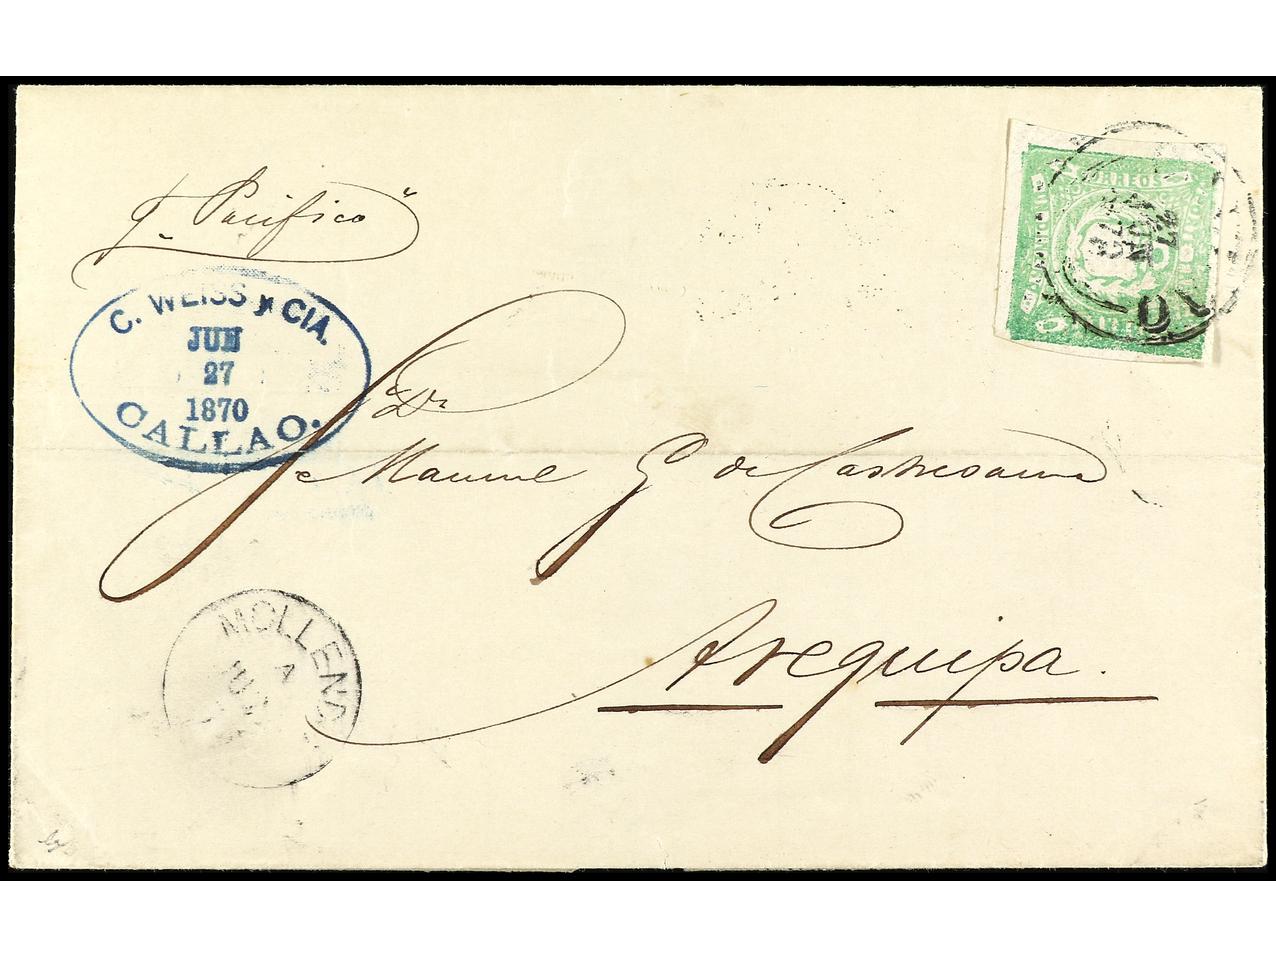 p. "Pacifico"
C. WEISS y CIA.
JUN
27
1870
CALLAO.
CORREOS
27
JUN
Sr Dn
Manuel G de Castresana
Arequipa.
MOLLENDO